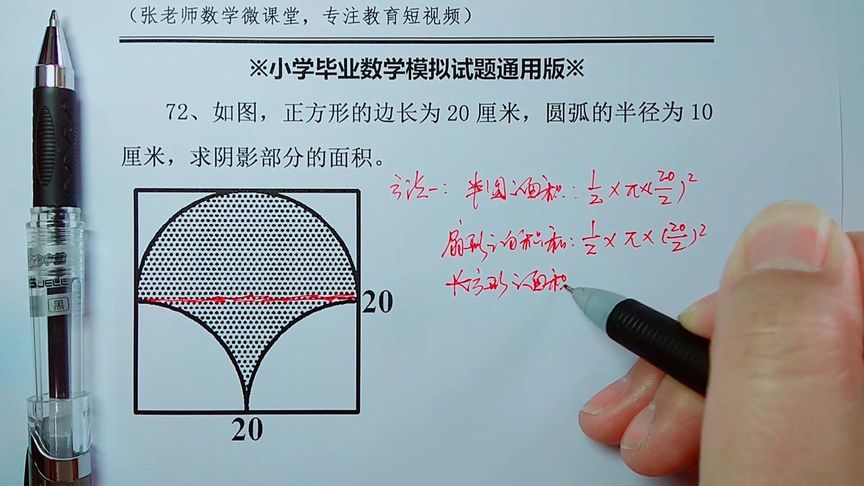 （张老师数学微课堂，专注教育短视频）
※小学毕业数学模拟试题通用版※
72、如图，正方形的边长为20厘米，圆弧的半径为10
厘米，求阴影部分的面积。
方法一：半圆面积：1/2×π×(20/2)²
扇形面积和：1/2×π×(20/2)²
长方形面积
20
20
GUELL
黑